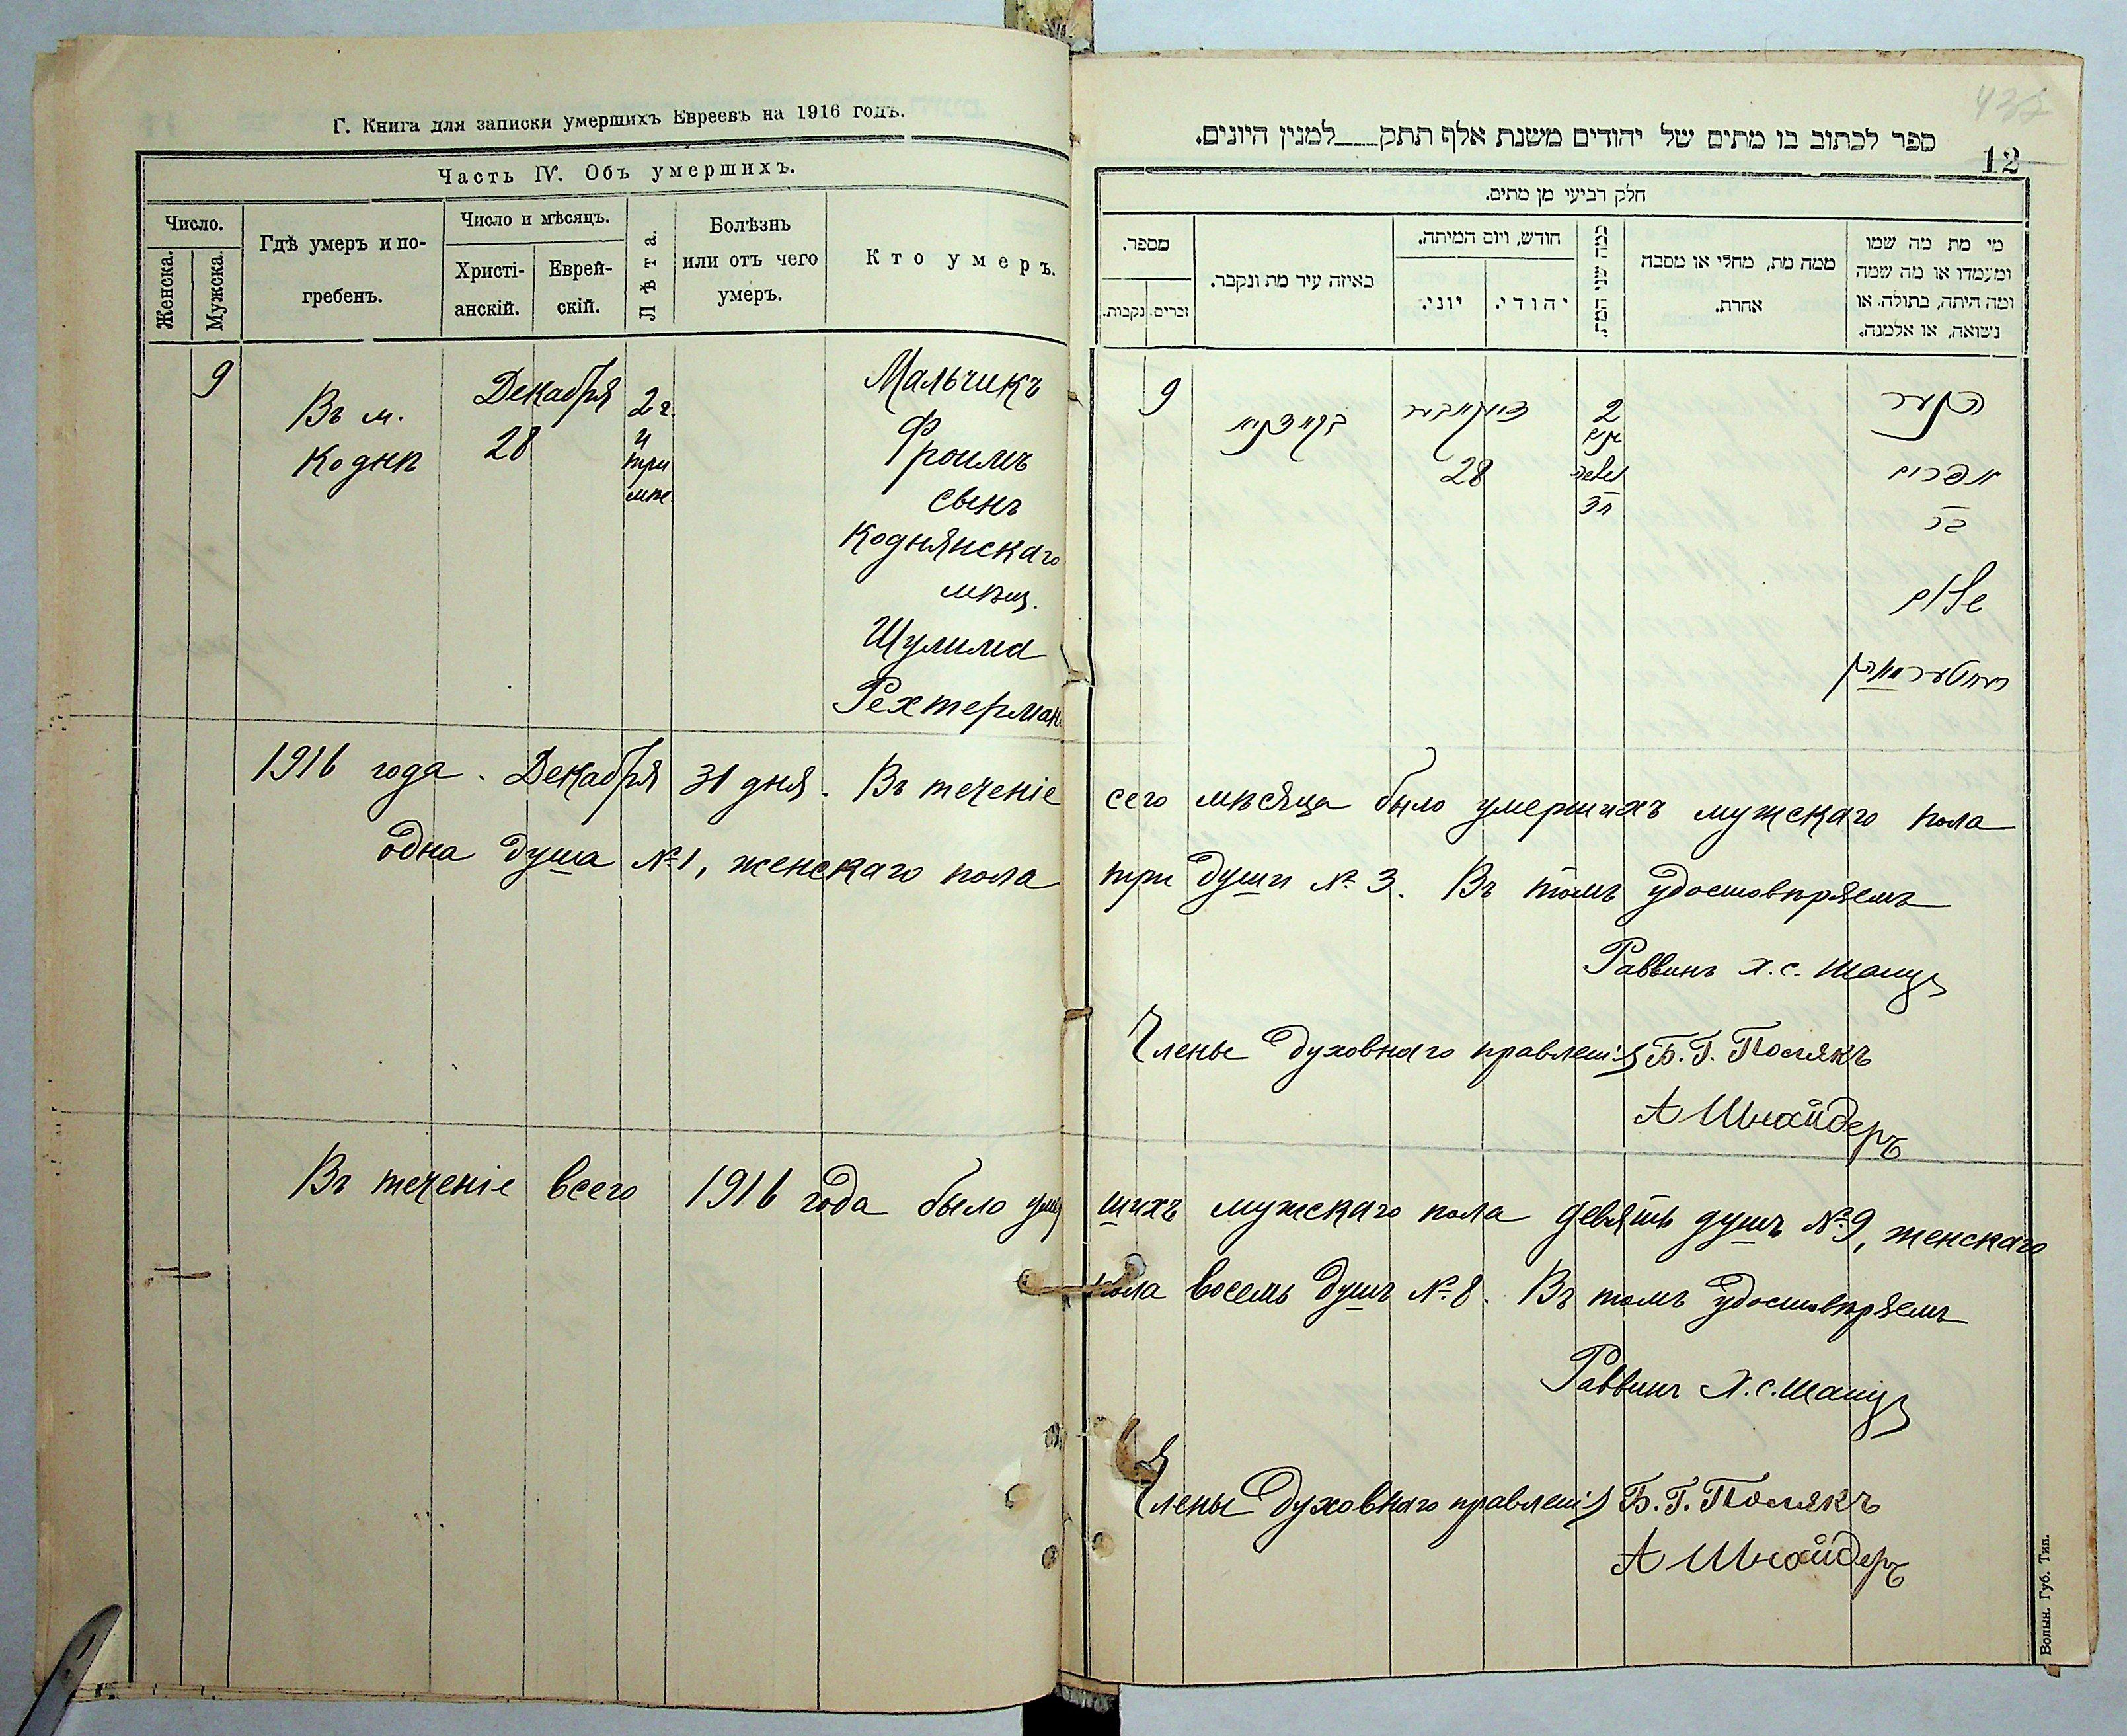 Г. Книга для записки умершихъ Евреевъ на 1916 годъ.
Часть IV. Объ умершихъ.
Число.
Женска.
Мужска.
Гдѣ умеръ и по-
гребенъ.
Число и мѣсяцъ.
Христі-
анскій.
Еврей-
скій.
Лѣта.
Болѣзнь
или отъ чего
умеръ.
Кто умеръ.
9
Въ м.
Коднѣ
Декабря
28
2 г.
и
три
мѣс.
Мальчикъ
Фроимъ
сынъ
Коднянскаго
мѣщ.
Шулима
Рехтерман
1916 года. Декабря 31 дня. Въ теченіе
одна душа № 1, женскаго пола
Въ теченіе всего 1916 года было умер
ספר לכתוב בו מתים של יהודים משנת אלף תתק___למנין היונים.
12
חלק רביעי מן מתים.
מספר.
נקבות.
זכרים.
באיזה עיר מת ונקבר.
חודש, ויום המיתה.
יוני.
יהודי.
כמה שני המת.
ממה מת, מחלי או מסבה
אחרת.
מי מת מה שמו
ומעמדו או מה שמה
ומה היתה, בתולה, או
נשואה, או אלמנה.
9
28
2
הנער
אפרים
בר
שלום
רעכטערמאן
сего мѣсяца было умершихъ мужскаго пола
три души № 3. Въ томъ удостовѣряемъ
Раввинъ Х. С. Шапиз
Члены духовнаго правленія Б. Г. Полякъ
А Шнайдеръ
шихъ мужскаго пола девять душъ № 9, женскаго
пола восемь душъ № 8. Въ томъ удостовѣряемъ
Раввинъ Х. С. Шапиз
Члены духовнаго правленія Б. Г. Полякъ
А Шнайдеръ
Волын. Губ. Тип.